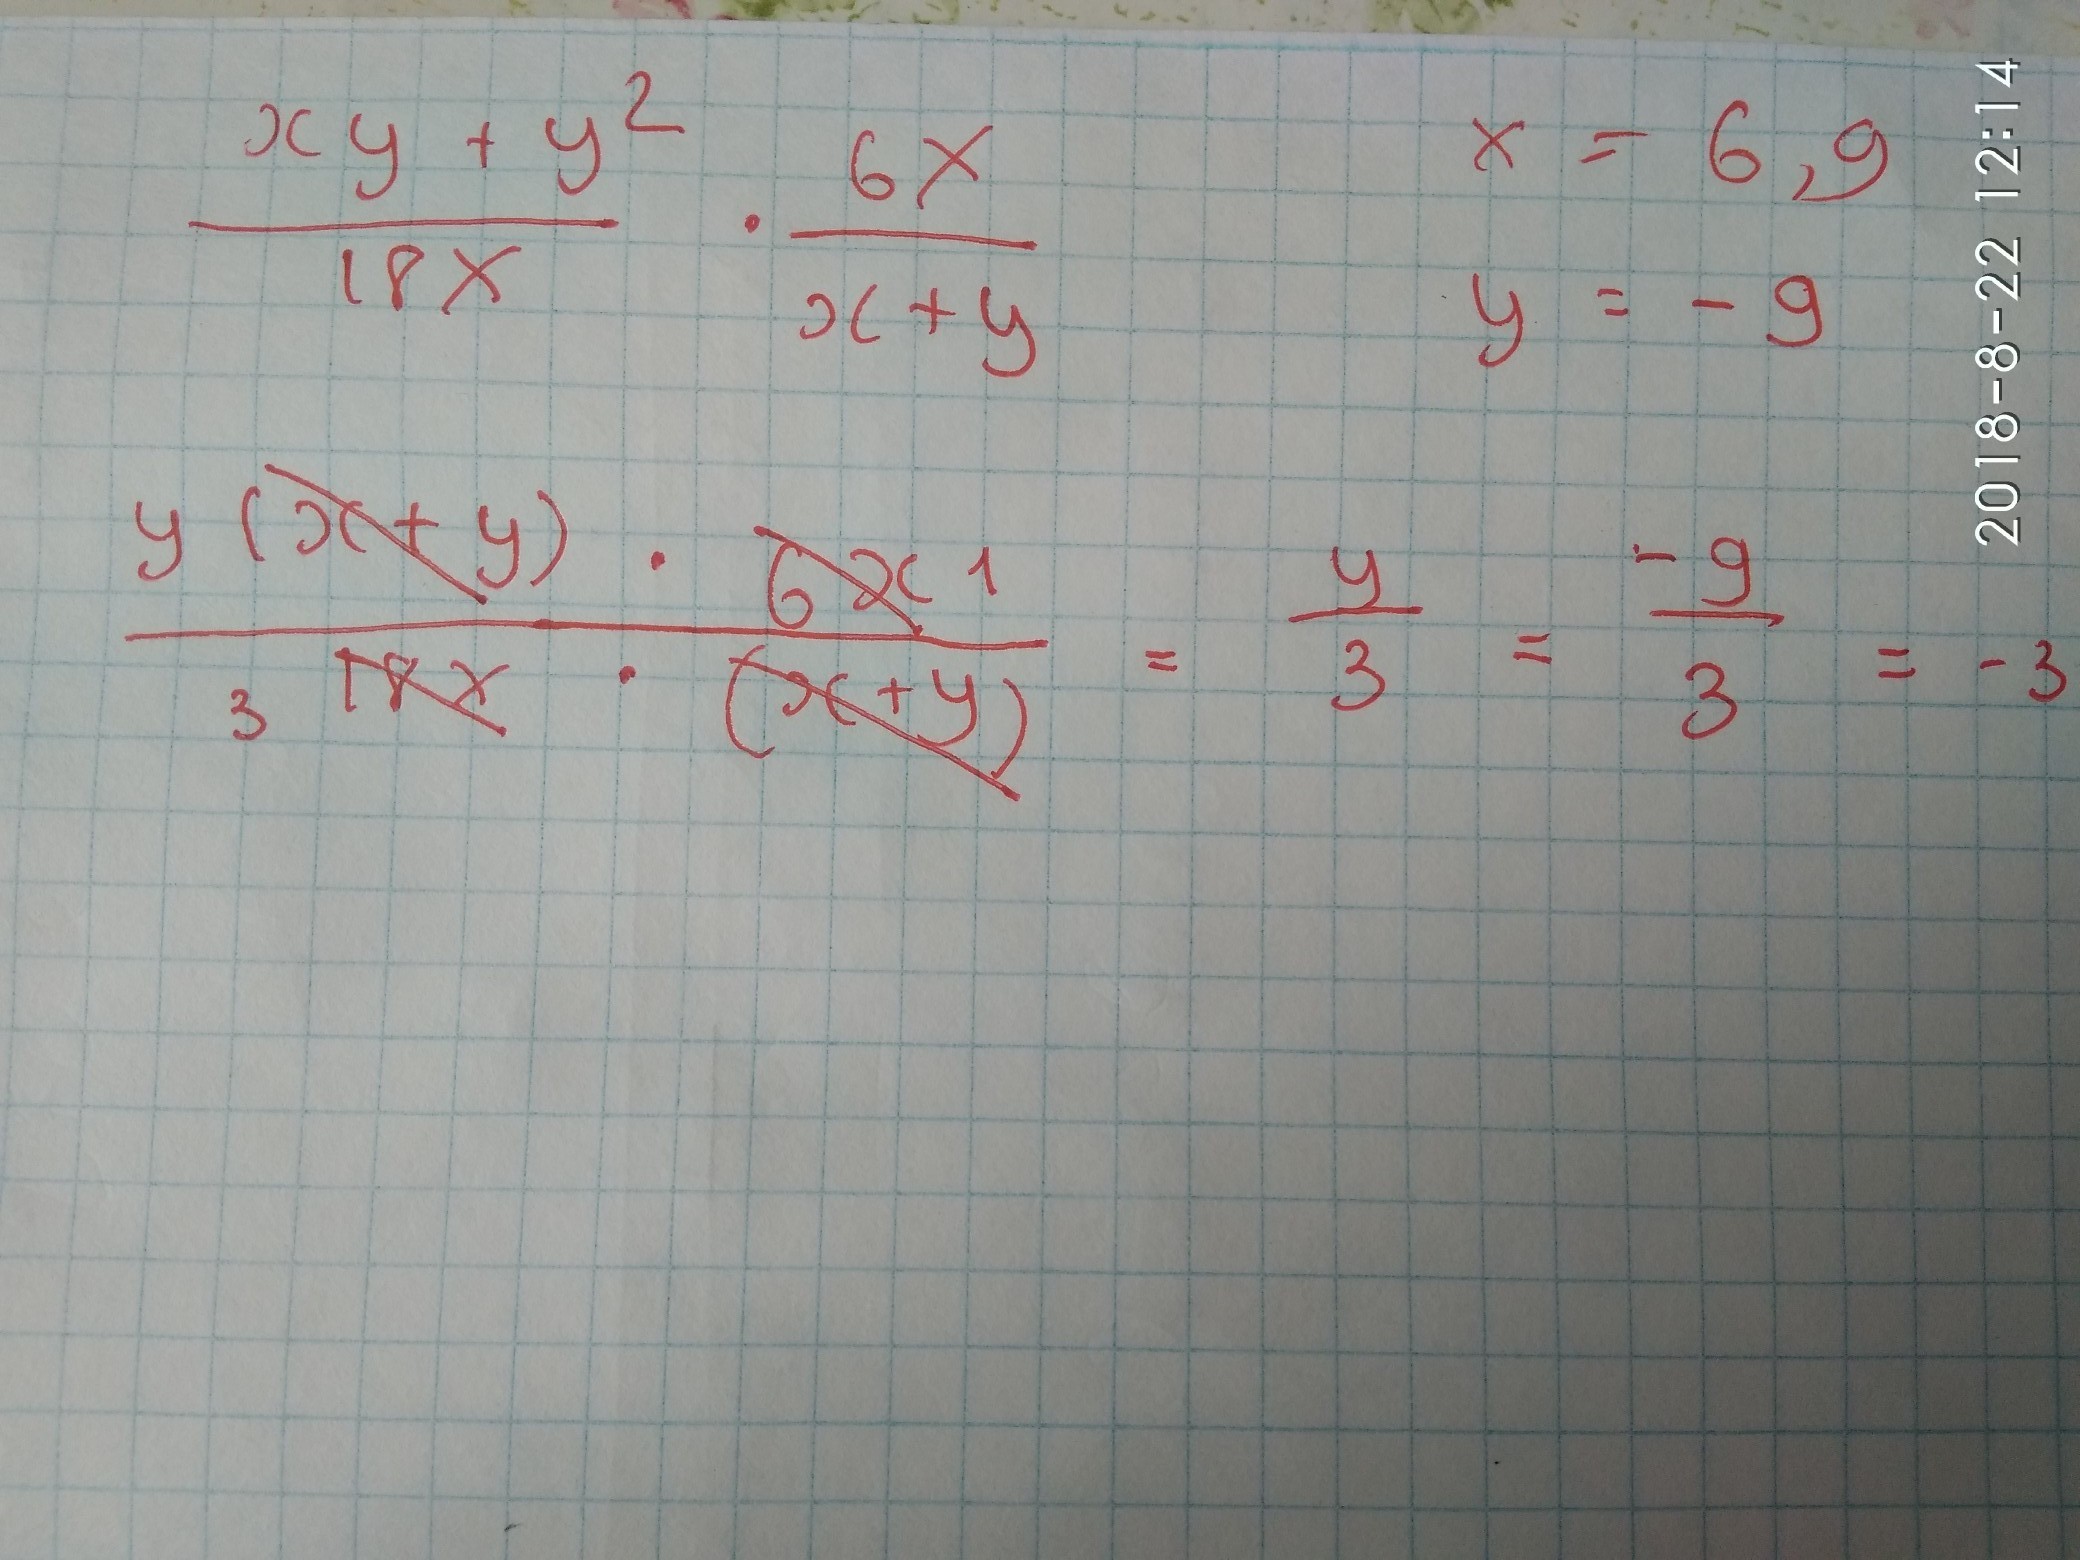 xy + y² / 18x · 6x / x+y
x = 6,9
y = -9
y (x+y) · 6x 1 / 3 18x · (x+y) = y/3 = -9/3 = -3
2018-8-22 12:14